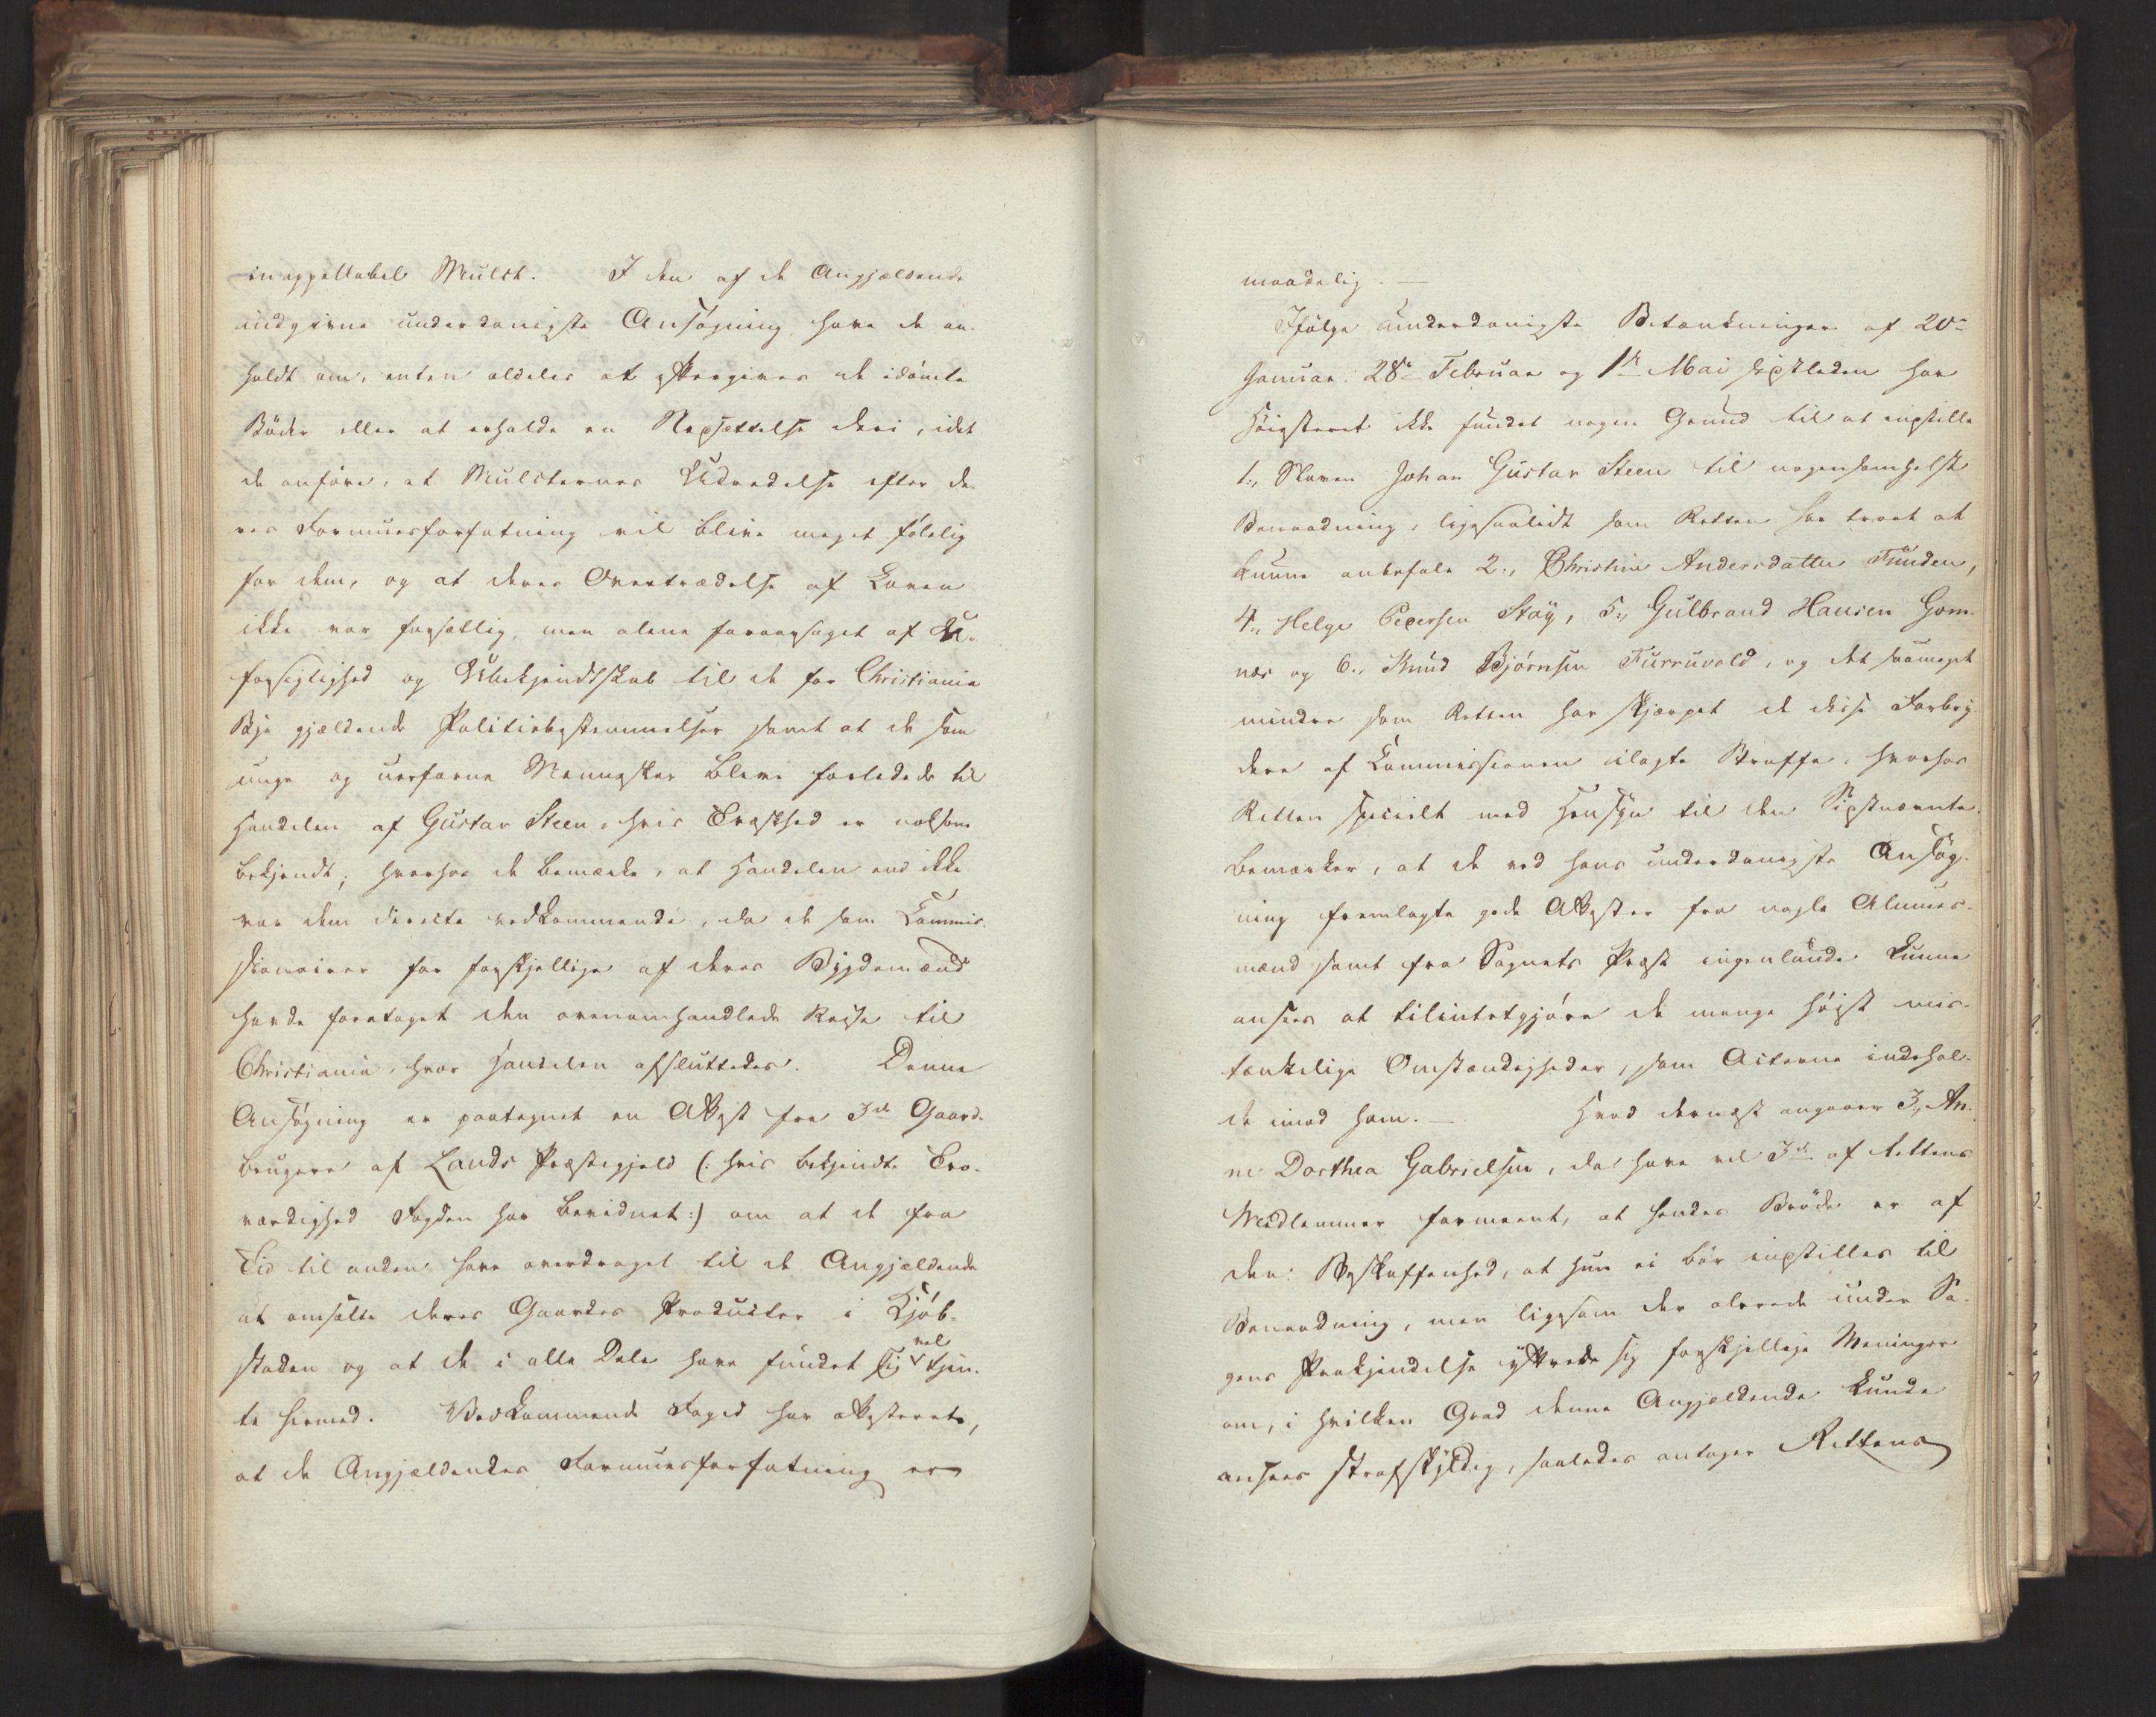 inappellabel Mulct. I den af de Angjældende
indgivne underdanigste Ansøgning have de an-
holdt om, enten aldeles at eftergives de idømte
Bøder eller at erholde en Nedsættelse deri, idet
de anføre, at Mulcternes Udredelse efter de-
res Formuesforfatning vil blive meget følelig
for dem, og at deres Overtrædelse af Loven
ikke var forsætlig, men alene foraarsaget af U-
forsigtighed og Ubekjendtskab til de for Christiania
Bye gjældende Politiebestemmelser samt at de som
unge og uerfarne Mennesker bleve forledede til
Handelen af Gustav Steen, hvis Træskhed er noksom
bekjendt; hvorhos de bemærke, at Handelen end ikke
var dem directe vedkommende, da de som Commis-
sionairer for forskjellige af deres Bygdemænd
havde foretaget den ovenomhandlede Reise til
Christiania, hvor Handelen afsluttedes. Denne
Ansøgning er paategnet en Attest fra 3de Gaard-
brugere af Lands Præstegjeld (: hvis bekjendte Tro-
værdighed Fogden har bevidnet :) om at de fra
Tid til anden have overdraget til de Angjældende
at omsætte deres Gaardes Producter i Kjøb-
staden og at de i alle Dele have fundet sig vel tjen-
te hermed. Vedkommende Foged har attesteret,
at de Angjældendes Formuesforfatning er
maadelig. —
Ifølge underdanigste Betænkninger af 20de
Januar, 28de Februar og 1ste Mai sidstleden har
Høiesteret ikke fundet nogen Grund til at indstille
1., Slaven Johan Gustav Steen til nogensomhelst
Benaadning, ligesaalidt som Retten har troet at
kunne anbefale 2., Christine Andersdatter Funden,
4., Helge Pedersen Stay, 5., Gulbrand Hansen Gom-
næs og 6., Knud Bjørnsen Furruvald, og det saameget
mindre som Retten har skjærpet de disse Forbry-
dere af Commissionen ilagte Straffe, hvorhos
Retten specielt med Hensyn til den Sidstnævnte
bemærker, at de ved hans underdanigste Ansøg-
ning fremlagte gode Attester fra nogle Almues-
mænd samt fra Sognets Præst ingenlunde kunne
ansees at tilintetgjøre de mange høist mis-
tænkelige Omstændigheder, som Acterne indehol-
de imod ham. — Hvad dernæst angaaer 3., An-
ne Dorthea Gabrielsen, da have vel 3de af Rettens
Medlemmer formeent, at hendes Brøde er af
den Beskaffenhed, at hun ei bør indstilles til
Benaadning, men ligesom der allerede under Sa-
gens Paakjendelse yttrede sig forskjellige Meninger
om, i hvilken Grad denne Angjældende kunde
ansees strafskyldig, saaledes antager Rettens